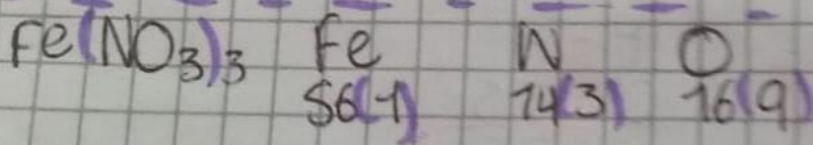 Fe(NO3)3 Fe N O
56(1) 14(3) 16(9)